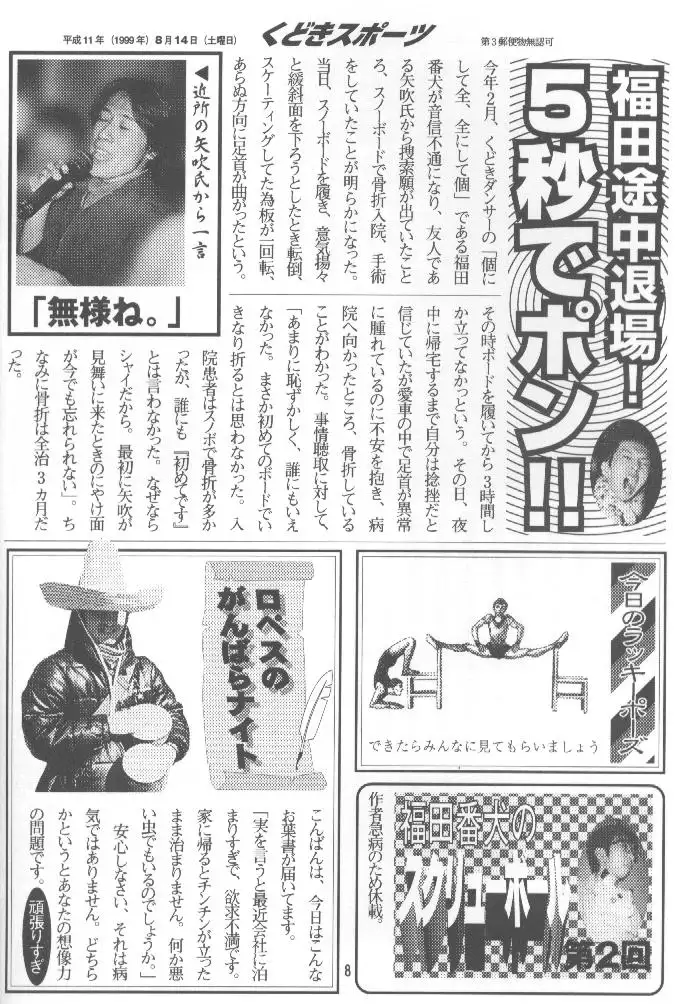 平成11年（1999年）8月14日（土曜日）
くどきスポーツ
第３郵便物無認可
福田途中退場！
５秒でポン!!
今年２月、くどきダンサーの「個に
して全、全にして個」である福田
番犬が音信不通になり、友人であ
る矢吹氏から捜索願が出ていたこと
ろ、スノーボードで骨折入院、手術
をしていたことが明らかになった。
当日、スノーボードを履き、意気揚々
と緩斜面を下ろうとしたとき転倒、
スケーティングしてた為板が一回転、
あらぬ方向に足首が曲がったという。
▲近所の矢吹氏から一言
「無様ね。」
その時ボードを履いてから３時間し
か立ってなかっという。その日、夜
中に帰宅するまで自分は捻挫だと
信じていたが愛車の中で足首が異常
に腫れているのに不安を抱き、病
院へ向かったところ、骨折している
ことがわかった。事情聴取に対して、
「あまりに恥ずかしく、誰にもいえ
なかった。まさか初めてのボードでい
きなり折るとは思わなかった。入
院患者はスノボで骨折が多か
ったが、誰にも『初めてです』
とは言わなかった。なぜなら
シャイだから。最初に矢吹が
見舞いに来たときのにやけ面
が今でも忘れられない」。ち
なみに骨折は全治３ヵ月だ
った。
今日のラッキーポーズ
できたらみんなに見てもらいましょう
ロペスの
がんばらナイト
こんばんは、今日はこんな
お葉書が届いてます。
「実を言うと最近会社に泊
まりすぎで、欲求不満です。
家に帰るとチンチンが立った
まま治まりません。何か悪
い虫でもいるのでしょうか。」
安心しなさい、それは病
気ではありません。どちら
かというとあなたの想像力
の問題です。
頑張りすぎ
福田番犬の
スクリューボール
第２回
作者急病のため休載。
8